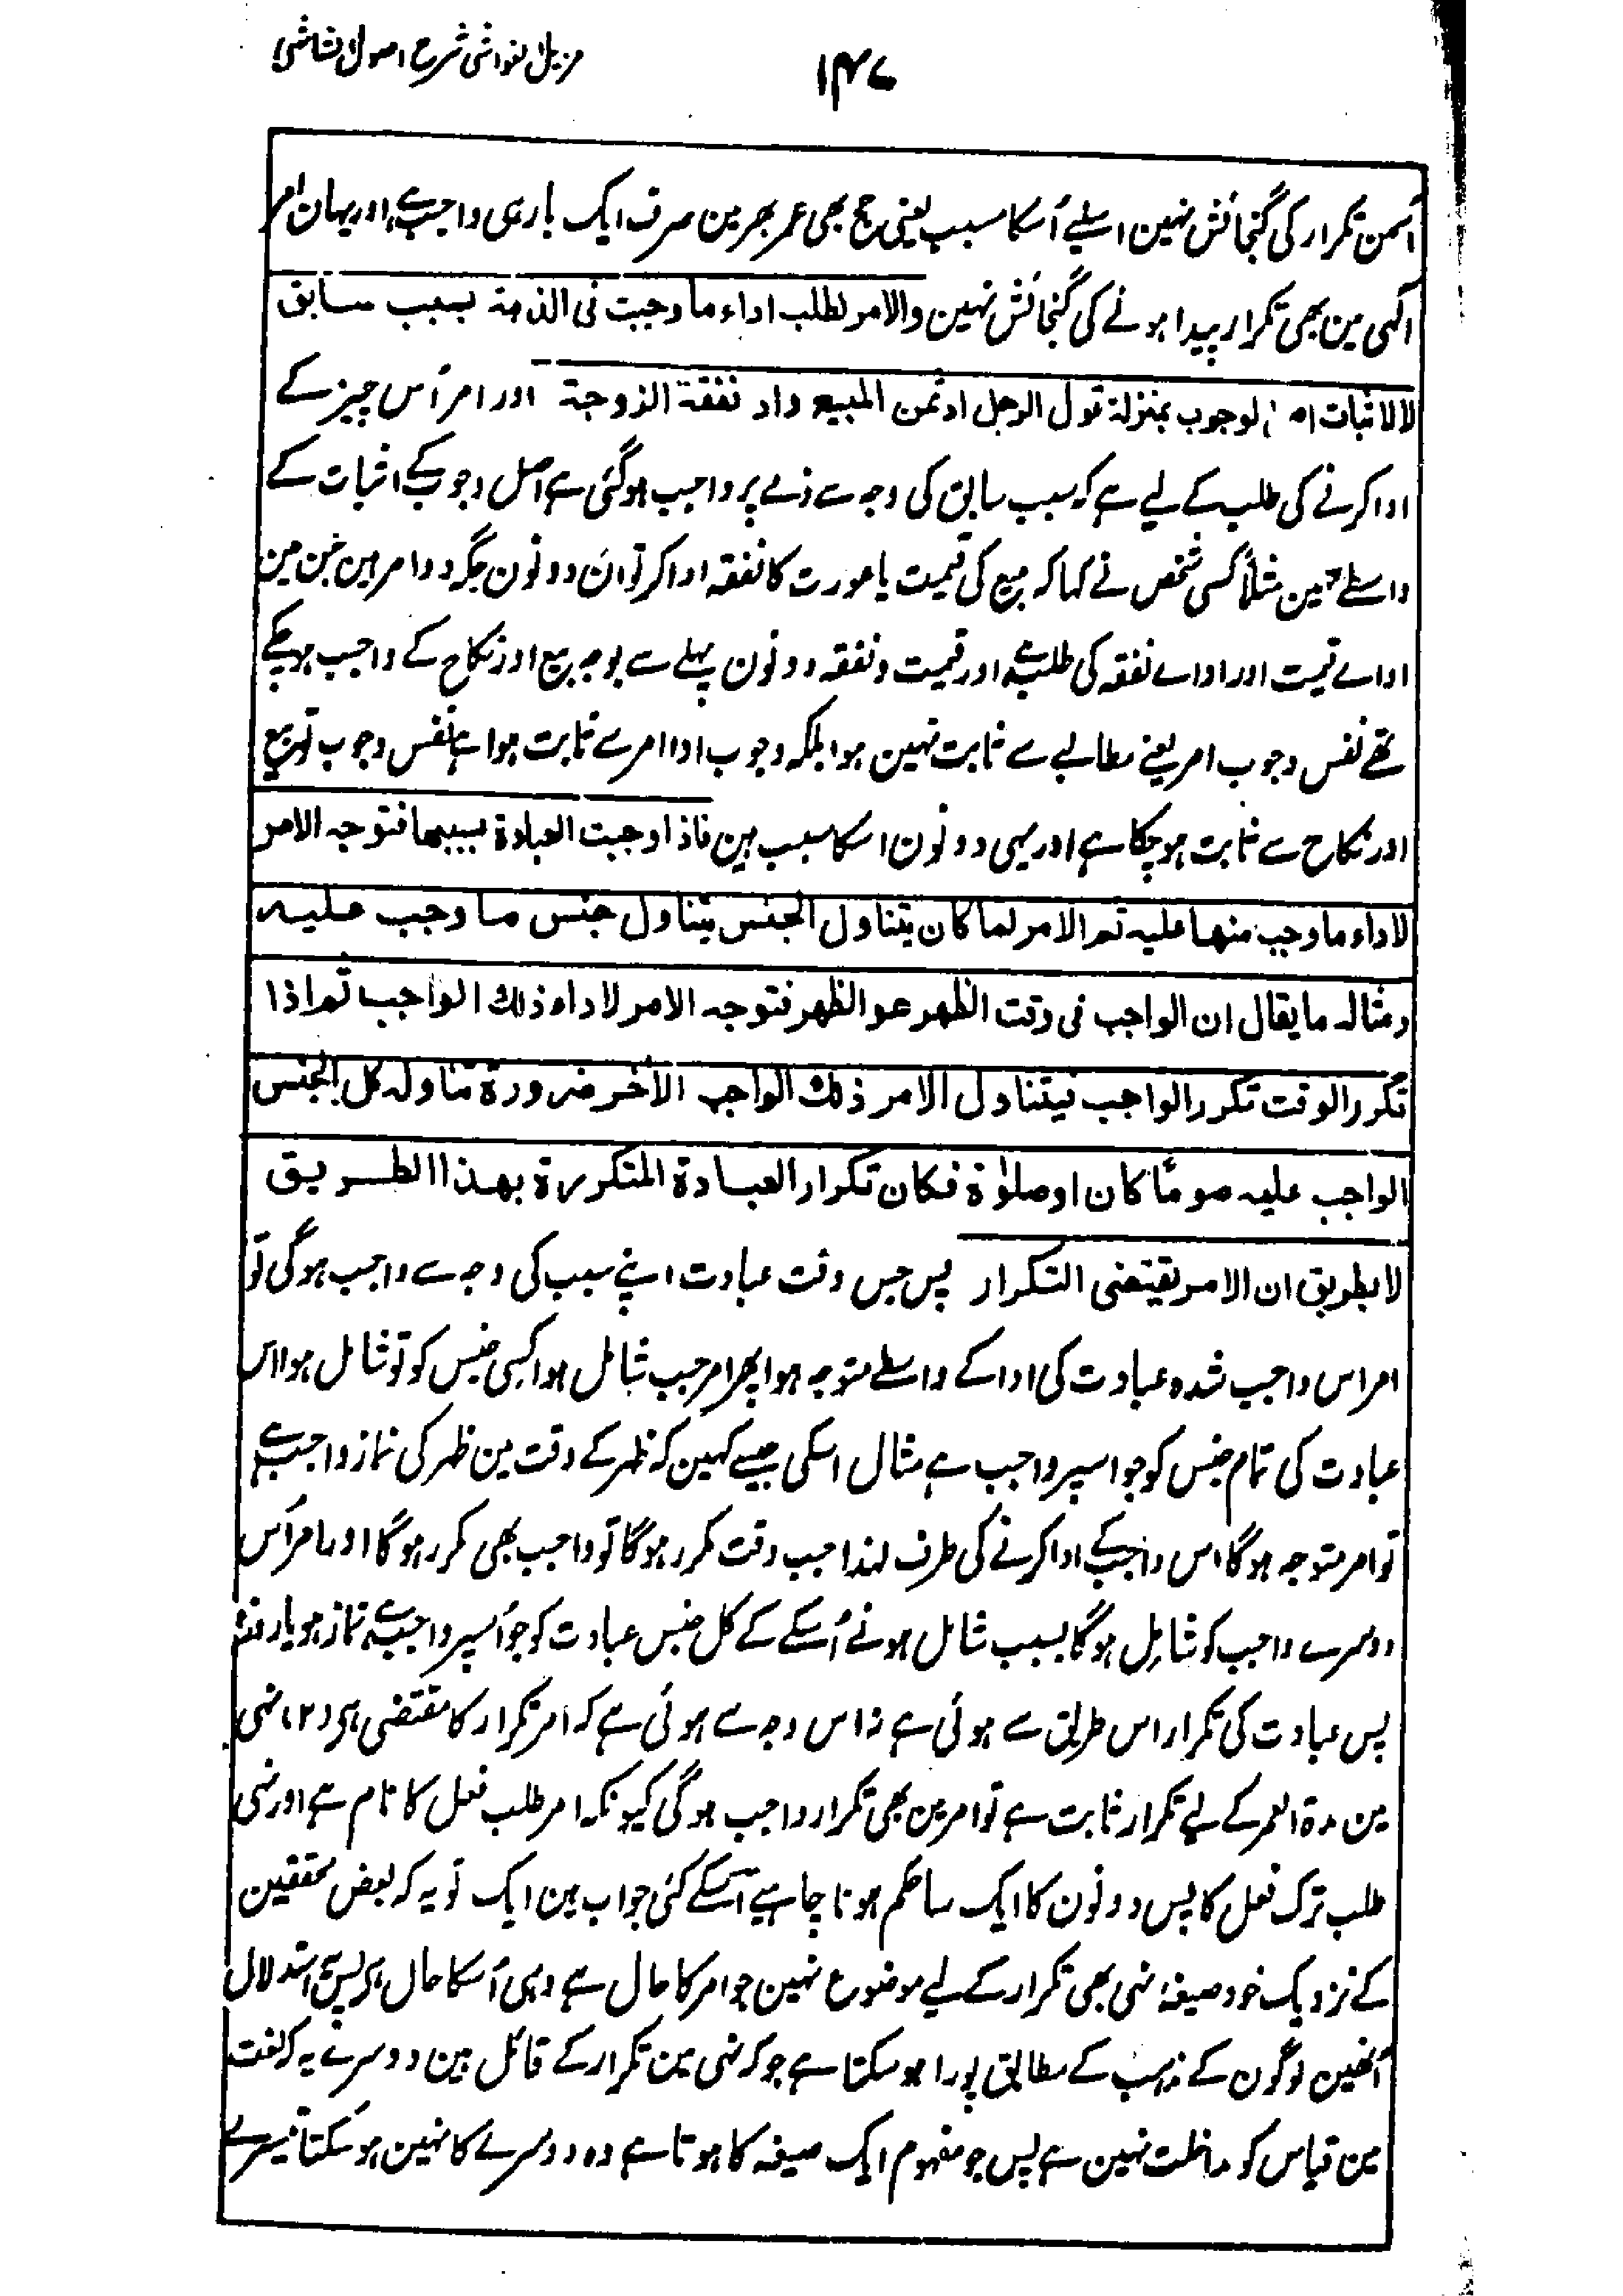 ۱۴۷
مزیل الغواشی شرح اصول الشاشی
اُسمین تکرار کی گنجائش نہین اسلیے اُسکا سبب یعنی حج بھی عمر بھر مین صرف ایک بار ہی واجب ہے اور یہان امر
الٰہی مین بھی تکرار پیدا ہونے کی گنجائش نہین والامر لطلب اداء ما وجبت فی الذمة بسبب سابق
لا لاثبات اصل الوجوب بمنزلة قول الرجل اد ثمن المبیع واد نفقة الزوجة اور امر اُس چیز کے
ادا کرنے کی طلب کے لیے ہے کہ سبب سابق کی وجہ سے ذمے پر واجب ہو گئی ہے اصل وجوب کے اثبات کے
واسطے نہین مثلاً کسی شخص نے کہا کہ مبیع کی قیمت یا عورت کا نفقہ ادا کر تو ان دونون جگہ دو امر ہین جن مین
اداے قیمت اور اداے نفقہ کی طلب ہے اور قیمت و نفقہ دونون پہلے سے بوجہ بیع اور نکاح کے واجب ہو چکے
تھے نفس وجوب امر یعنے مطالبے سے ثابت نہین ہوا بلکہ وجوب ادا امر سے ثابت ہوا ہے نفس وجوب تو بیع
اور نکاح سے ثابت ہو چکا ہے اور یہی دونون اسکا سبب ہین فاذا وجبت العبادة بسببها فتوجه الامر
لاداء ما وجب منها علیه ثم الامر لما کان یتناول الجنس یتناول جنس ما وجب علیه
ومثاله ما یقال ان الواجب فی وقت الظهر هو الظهر فتوجه الامر لاداء ذلك الواجب ثم اذا
تکرر الوقت تکرر الواجب فیتناول الامر ذلك الواجب الأخر ضرورة تناوله کل الجنس
الواجب علیه صومًا کان او صلوٰة فکان تکرار العبادة المتکررة بهذا الطریق
لا بطریق ان الامر یقتضی التکرار پس جس وقت عبادت اپنے سبب کی وجہ سے واجب ہو گی تو
امر اس واجب شدہ عبادت کی ادا کے واسطے متوجہ ہوا پھر امر جب شامل ہوا کسی جنس کو تو شامل ہوا اس
عبادت کی تمام جنس کو جو اسپر واجب ہے مثال اسکی جیسے کہین کہ ظہر کے وقت مین ظہر کی نماز واجب ہے
تو امر متوجہ ہوگا اس واجب کے ادا کرنے کی طرف لہذا جب وقت مکرر ہوگا تو واجب بھی مکرر ہوگا اور امر اُس
دوسرے واجب کو شامل ہوگا بسبب شامل ہونے اُسکے کے کل جنس عبادت کو جو اُسپر واجب ہے نماز ہو یا روزہ
پس عبادت کی تکرار اس طریق سے ہوئی ہے نہ اس وجہ سے ہوئی ہے کہ امر تکرار کا مقتضی ہی (۲) نہی
مین مدة العمر کے لیے تکرار ثابت ہے تو امر مین بھی تکرار واجب ہوگی کیونکہ امر طلب فعل کا نام ہے اور نہی
طلب ترک فعل کا پس دونون کا ایک سا حکم ہونا چاہیے اُسکے کئی جواب ہین ایک تو یہ کہ بعض محققین
کے نزدیک خود صیغۂ نہی بھی تکرار کے لیے موضوع نہین جو امر کا حال ہے وہی اُسکا حال ہی پس یہ استدلال
اُنھین لوگون کے مذہب کے مطابق پورا ہو سکتا ہے جو کہ نہی مین تکرار کے قائل ہین دوسرے یہ کہ لغت
مین قیاس کو مداخلت نہین ہے پس جو مفہوم ایک صیغہ کا ہوتا ہے وہ دوسرے کا نہین ہو سکتا تیسرے